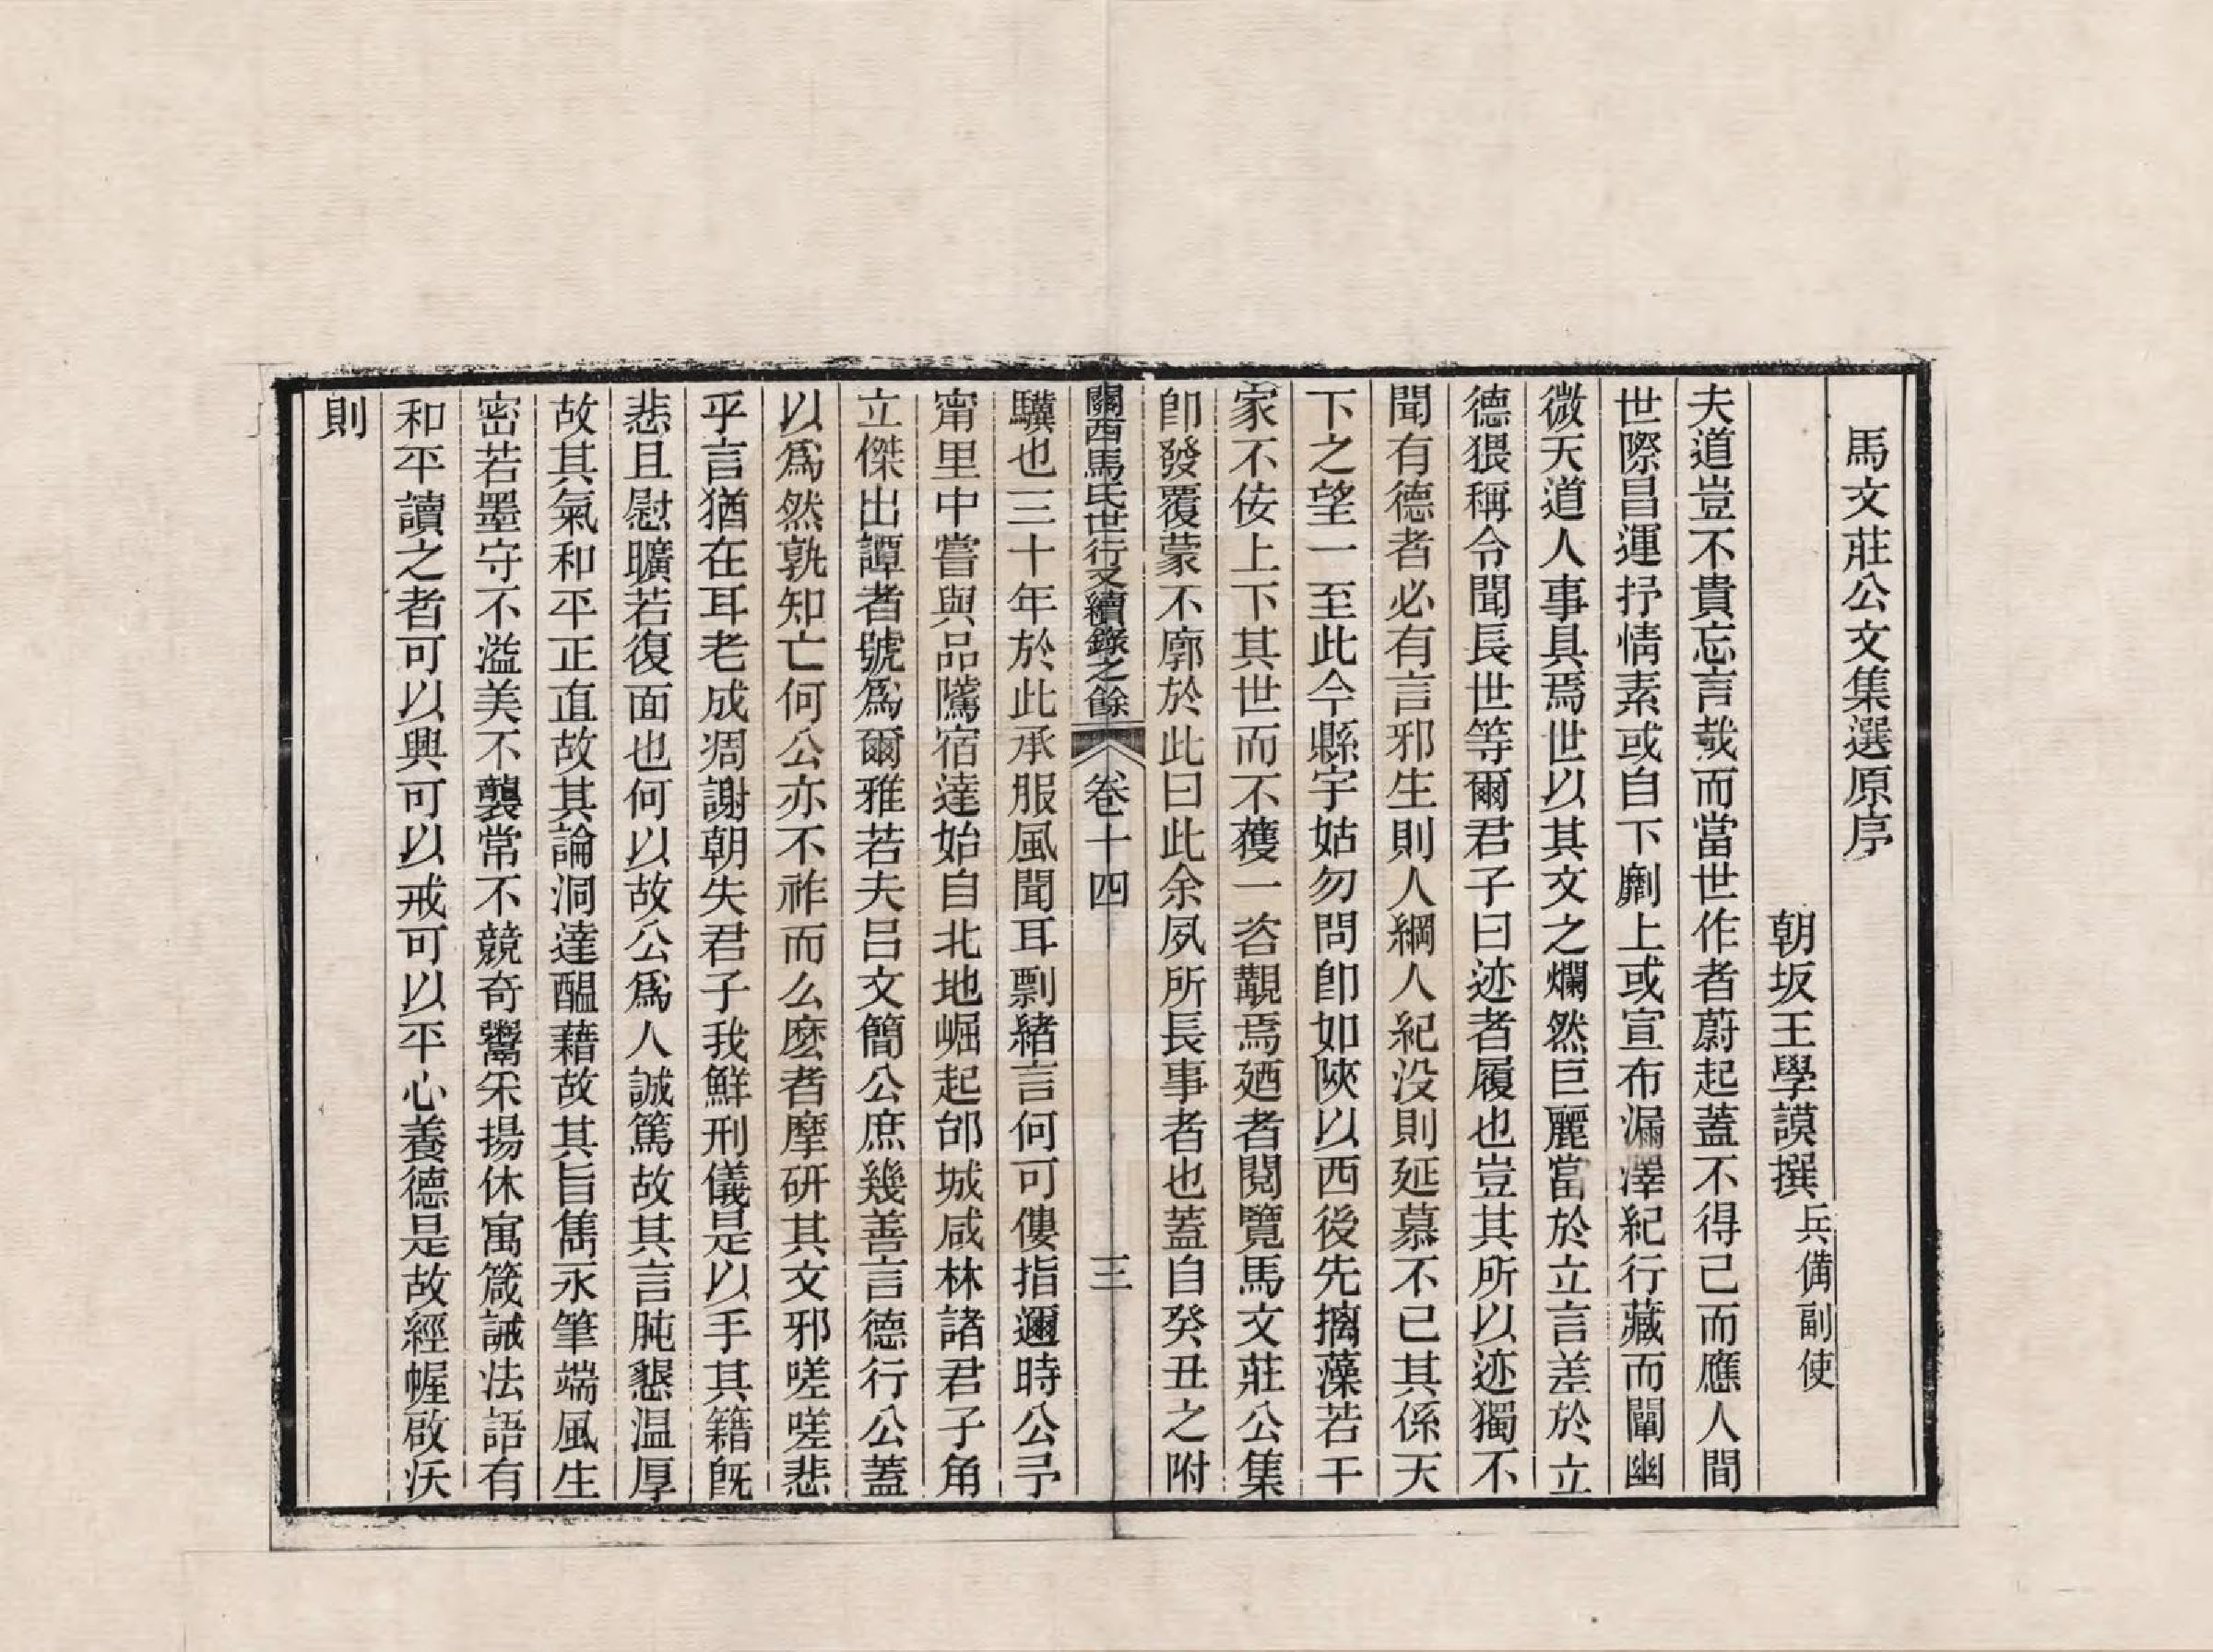 馬文莊公文集選原序
朝坂王學謨撰兵備副使
夫道豈不貴忘言哉而當世作者蔚起蓋不得已而應人間
世際昌運抒情素或自下劘上或宣布漏澤紀行藏而闡幽
微天道人事具焉世以其文之爛然巨麗當於立言差於立
德猥稱令聞長世等爾君子曰迹者履也豈其所以迹獨不
聞有德者必有言邪生則人綱人紀没則延慕不已其係天
下之望一至此今縣宇姑勿問卽如陝以西後先摛藻若干
家不佞上下其世而不獲一咨覯焉廼者閱覽馬文莊公集
卽發覆蒙不廓於此曰此余夙所長事者也蓋自癸丑之附
關西馬氏世行文續錄之餘 卷十四 三
驥也三十年於此承服風聞耳剽緒言何可僂指邇時公予
甯里中嘗與品隲宿達始自北地崛起邰城咸林諸君子角
立傑出譚者號爲爾雅若夫呂文簡公庶幾善言德行公蓋
以爲然孰知亡何公亦不祚而么麽者摩研其文邪嗟嗟悲
乎言猶在耳老成凋謝朝失君子我鮮刑儀是以手其籍旣
悲且慰曠若復面也何以故公爲人誠篤故其言肫懇温厚
故其氣和平正直故其論洞達醞藉故其旨雋永筆端風生
密若墨守不溢美不襲常不競奇鬻釆揚休寓箴誡法語有
和平讀之者可以興可以戒可以平心養德是故經幄啟沃
則